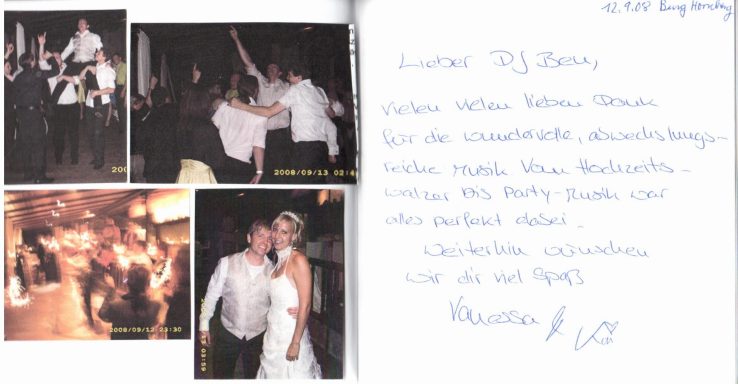 200
2008/09/13 02:4
2008/09/12 23:30
13 03:59
12.9.08 Burg Hornberg
Lieber DJ Ben,
vielen vielen lieben Dank
für die wundervolle, abwechslungs-
reiche Musik. Vom Hochzeits-
walzer bis Party-Musik war
alles perfekt dabei.
Weiterhin wünschen
wir dir viel Spaß
Vanessa &